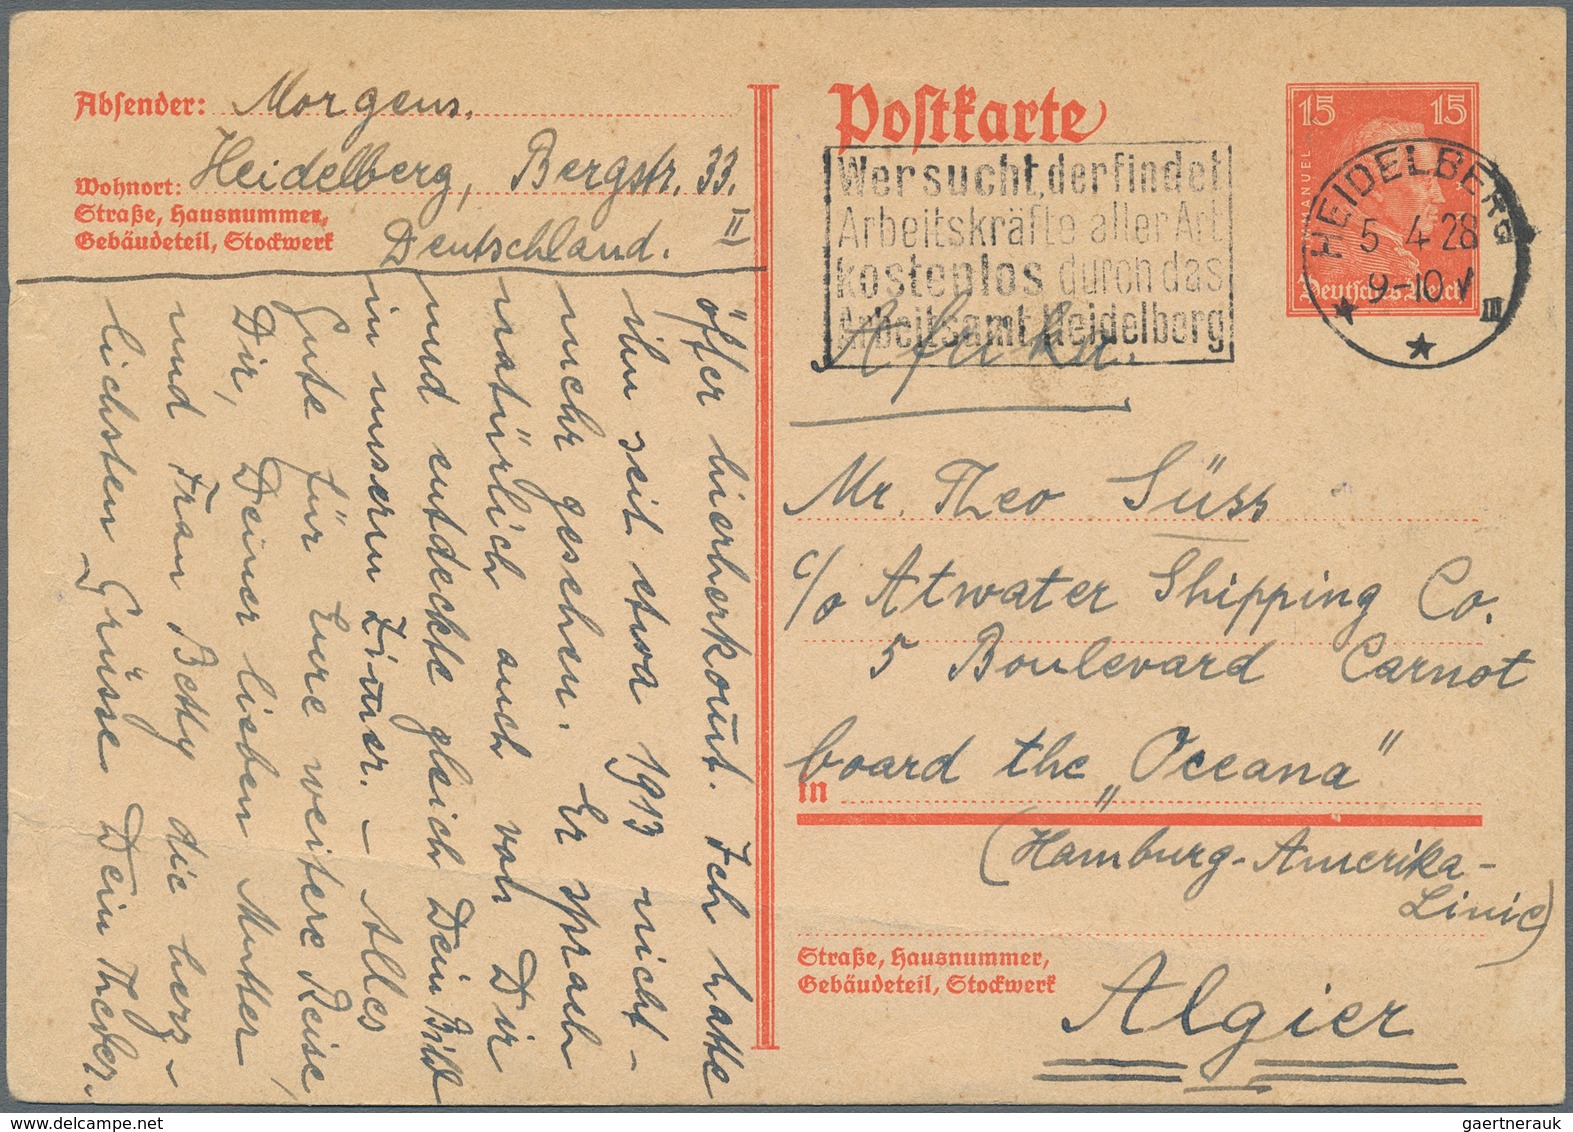 Absender: Morgens.
Heidelberg, Bergstr. 33.
Wohnort:
Straße, Hausnummer,
Gebäudeteil, Stockwerk
II
Deutschland.
öfter hierherkom̄t. Ich hatte
ihn seit etwa 1913 nicht
mehr gesehen. Er sprach
natürlich auch von Dir
und entdeckte gleich Dein Bild
in unserm Zim̄er. – Alles
Gute für Eure weitere Reise,
Dir, Deiner lieben Mutter
und Frau Betty die herz-
lichsten Grüsse Dein Theodor.
Postkarte
Wer sucht, der findet
Arbeitskräfte aller Art
kostenlos durch das
Arbeitsamt Heidelberg
15 15
MANUEL
Deutsches Reich
HEIDELBERG
5 4 28
9-10 V
III
Afrika.
Mr. Theo Süss
c/o Atwater Shipping Co.
5 Boulevard Carnot
board the „Oceana“
in
(Hamburg-Amerika-
Linie)
Straße, Hausnummer,
Gebäudeteil, Stockwerk
Algier
www.delcampe.net
gaertnerauk